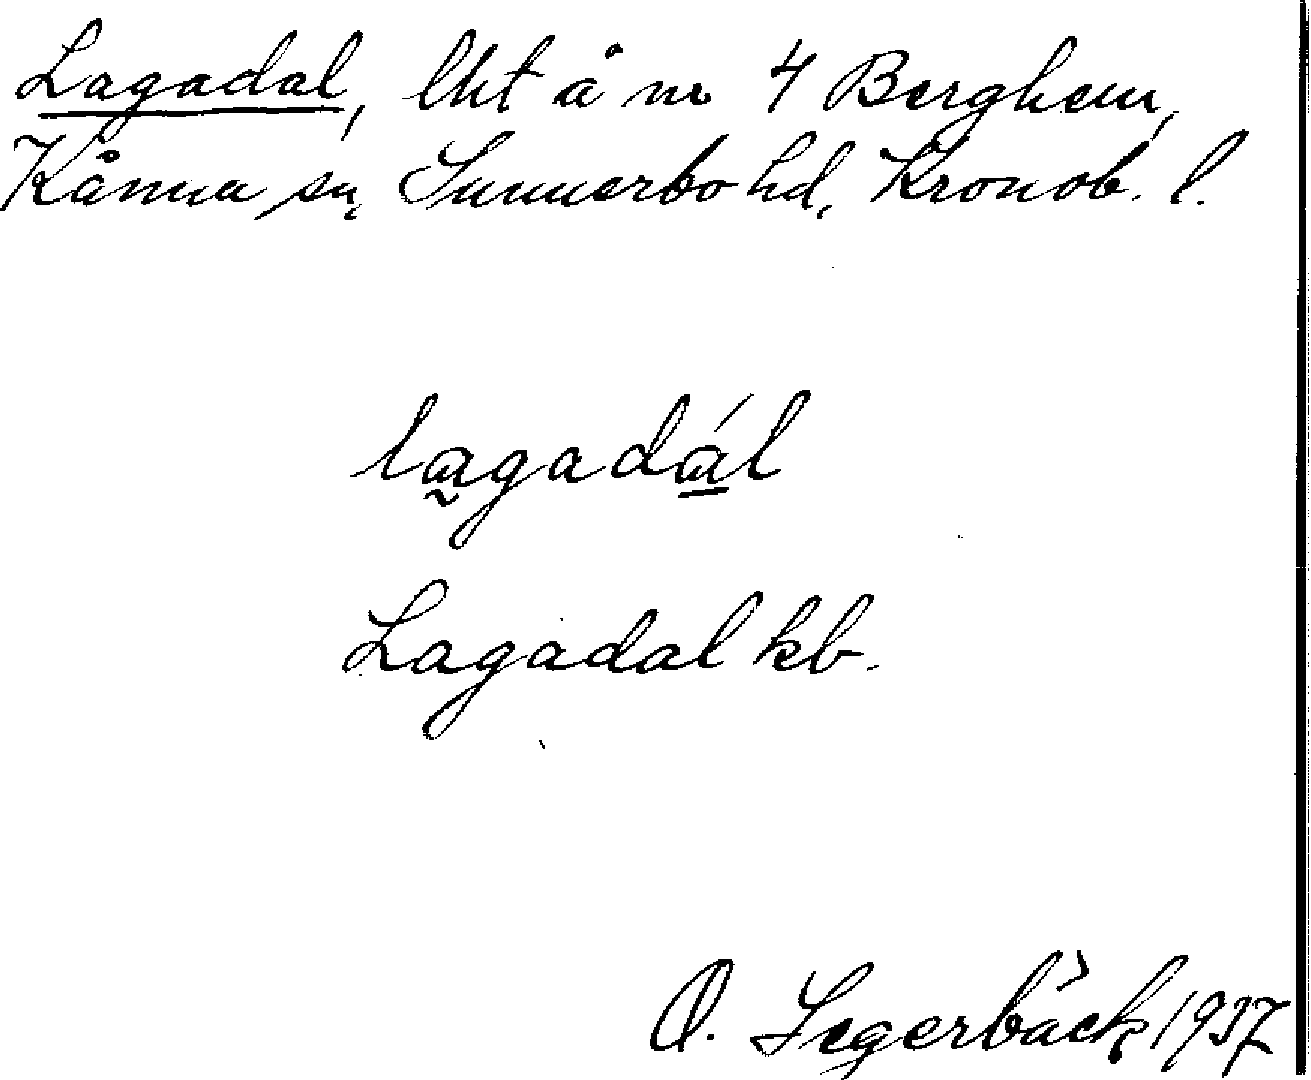 Lagadal, lht å nr 4 Berghem,
Kånna sn, Sunnerbo hd, Kronob. l.
la̰gadá̱l
Lagadal kb.
O. Segerbäck 1937